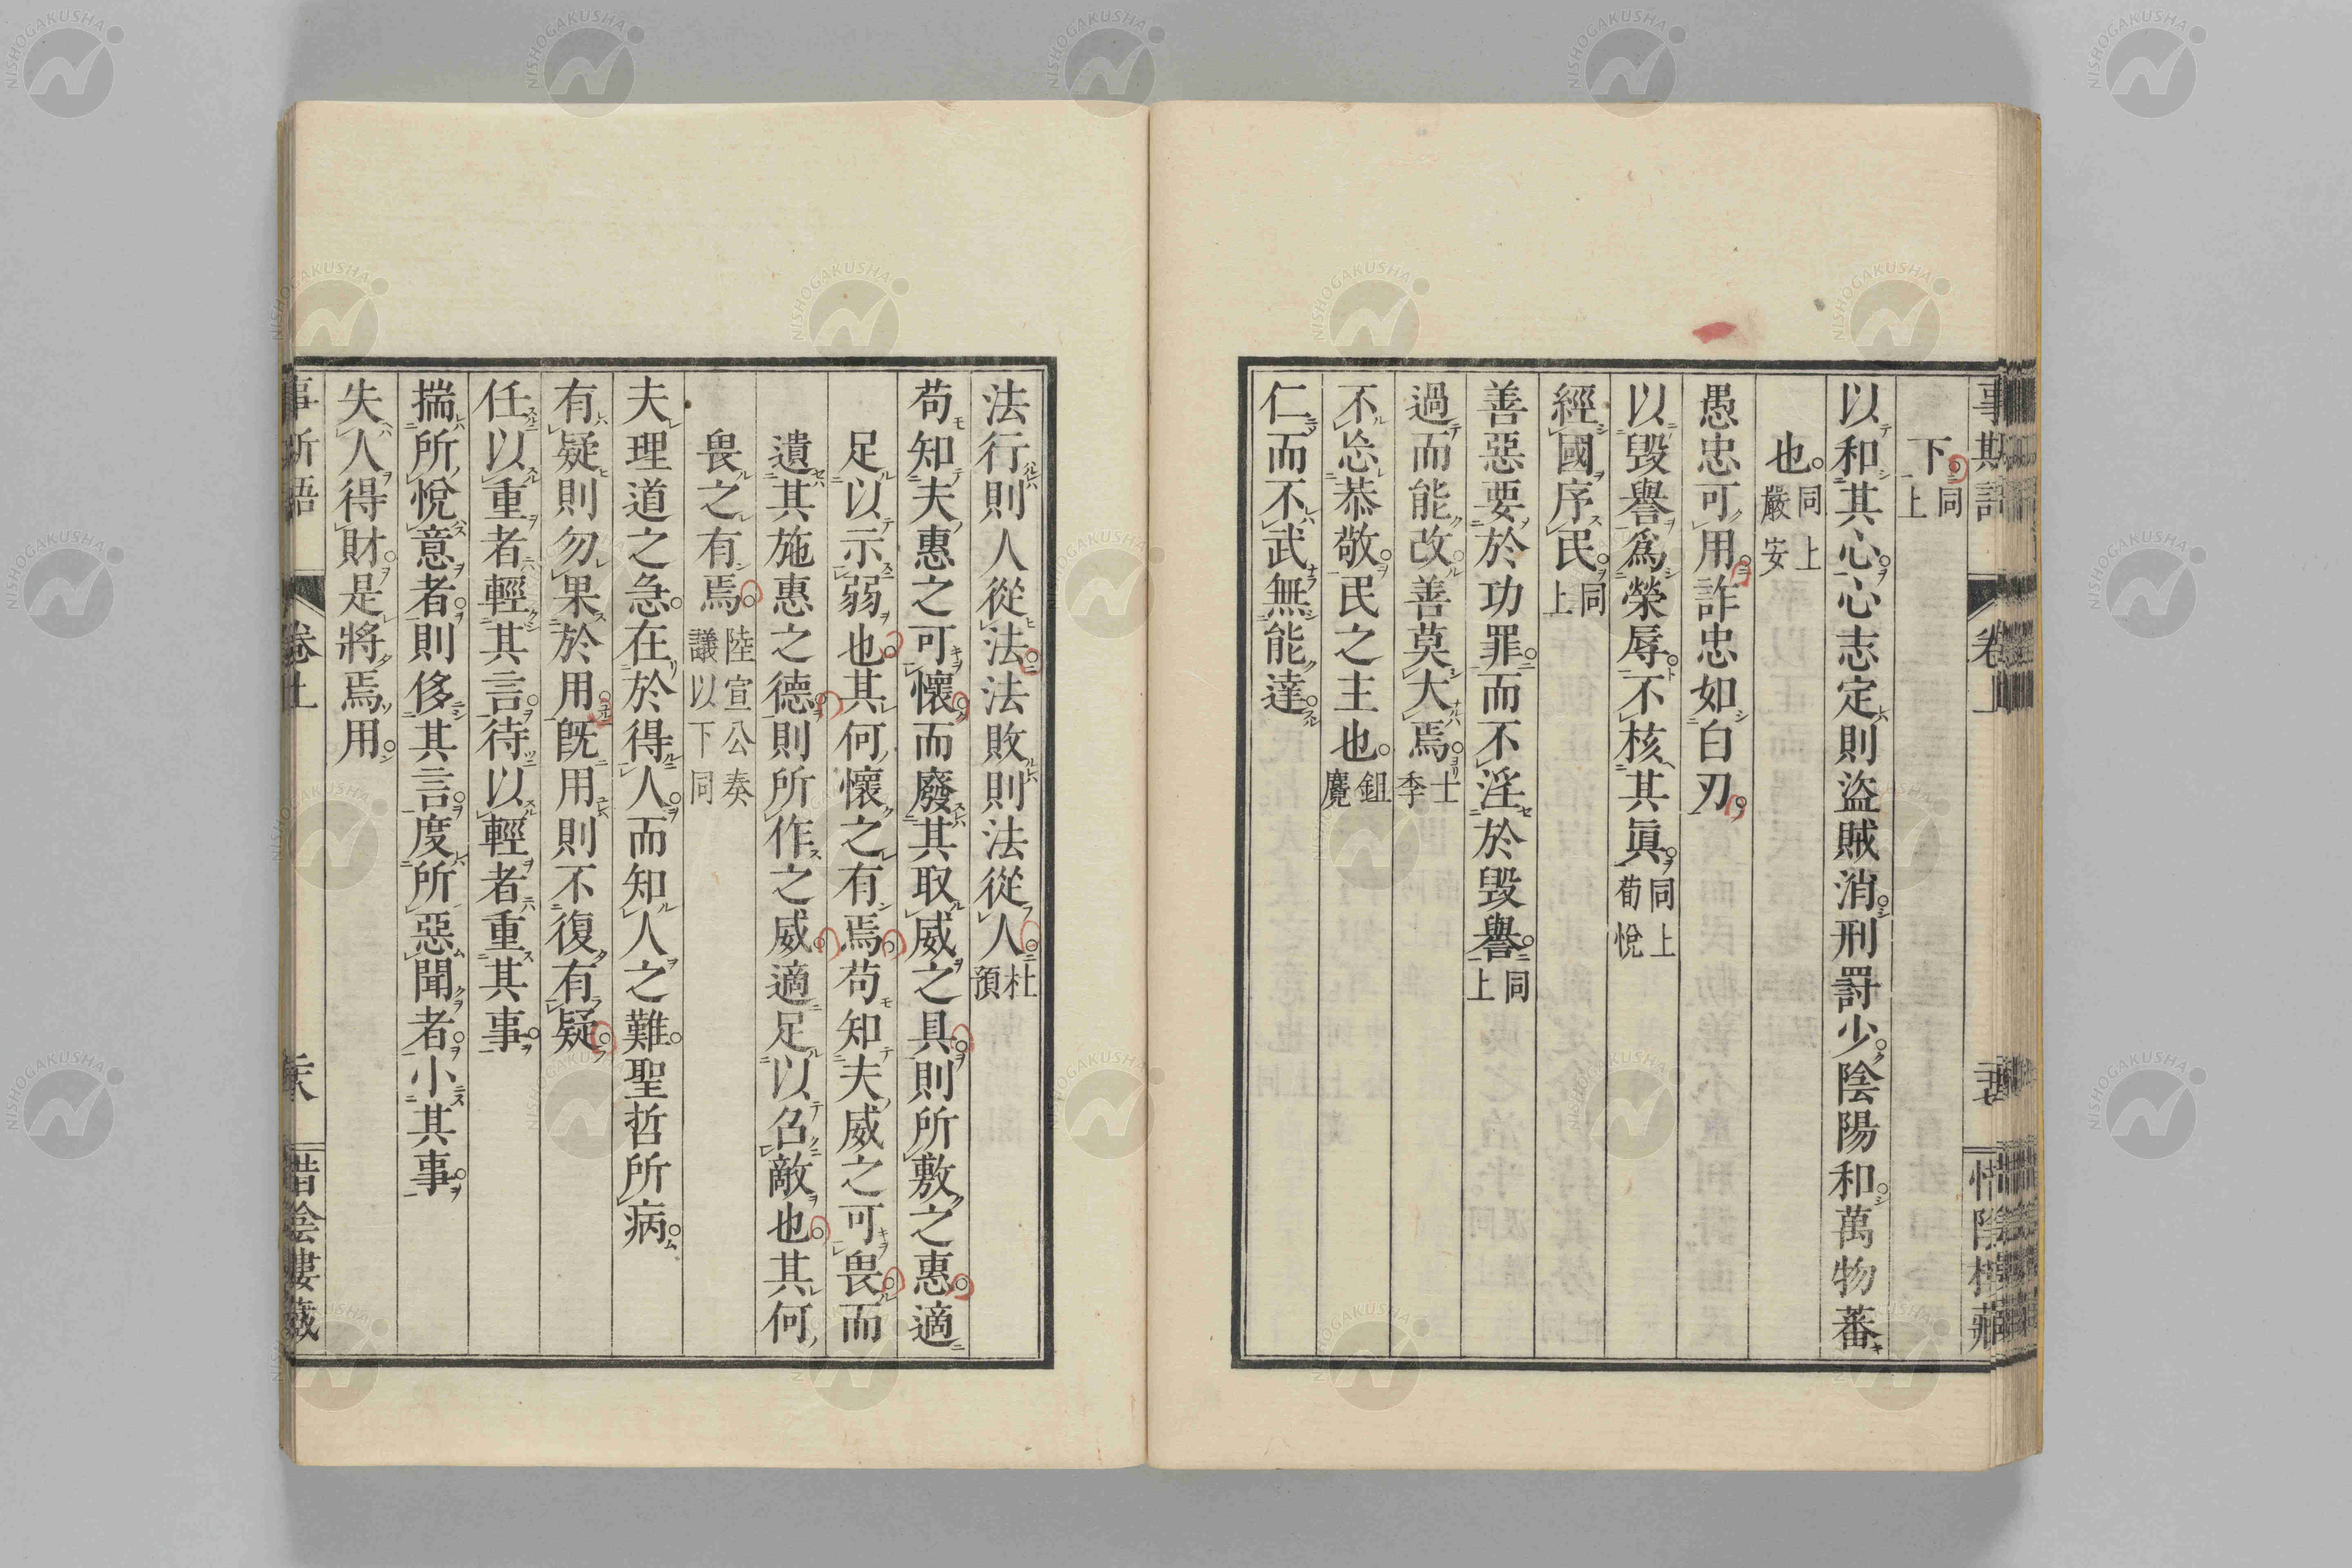 下。同上
以和其心。心志定則盜賊消。刑罸少。陰陽和。萬物蕃
也。同上嚴安
愚忠可用。詐忠如白刃。
以毀譽爲榮辱。不核其眞。同上荀悅
經國序民。同上
善惡要於功罪。而不淫於毀譽。同上
過而能改。善莫大焉。士季
不忘恭敬。民之主也。鉏麑
仁而不武。無能達。
法行則人從法。法敗則法從人。杜預
苟知夫惠之可懷。而廢其取威之具。則所敷之惠。適
足以示弱也。其何懷之有焉。苟知夫威之可畏。而
遺其施惠之德。則所作之威。適足以召敵也。其何
畏之有焉。陸宣公奏議以下同
夫理道之急。在於得人。而知人之難。聖哲所病。
有疑則勿果於用。既用則不復有疑。
任以重者。輕其言。待以輕者。重其事。
揣所悅意者。則侈其言。度所惡聞者。小其事。
失人得財。是將焉用。
卷上
NISHOGAKUSHA